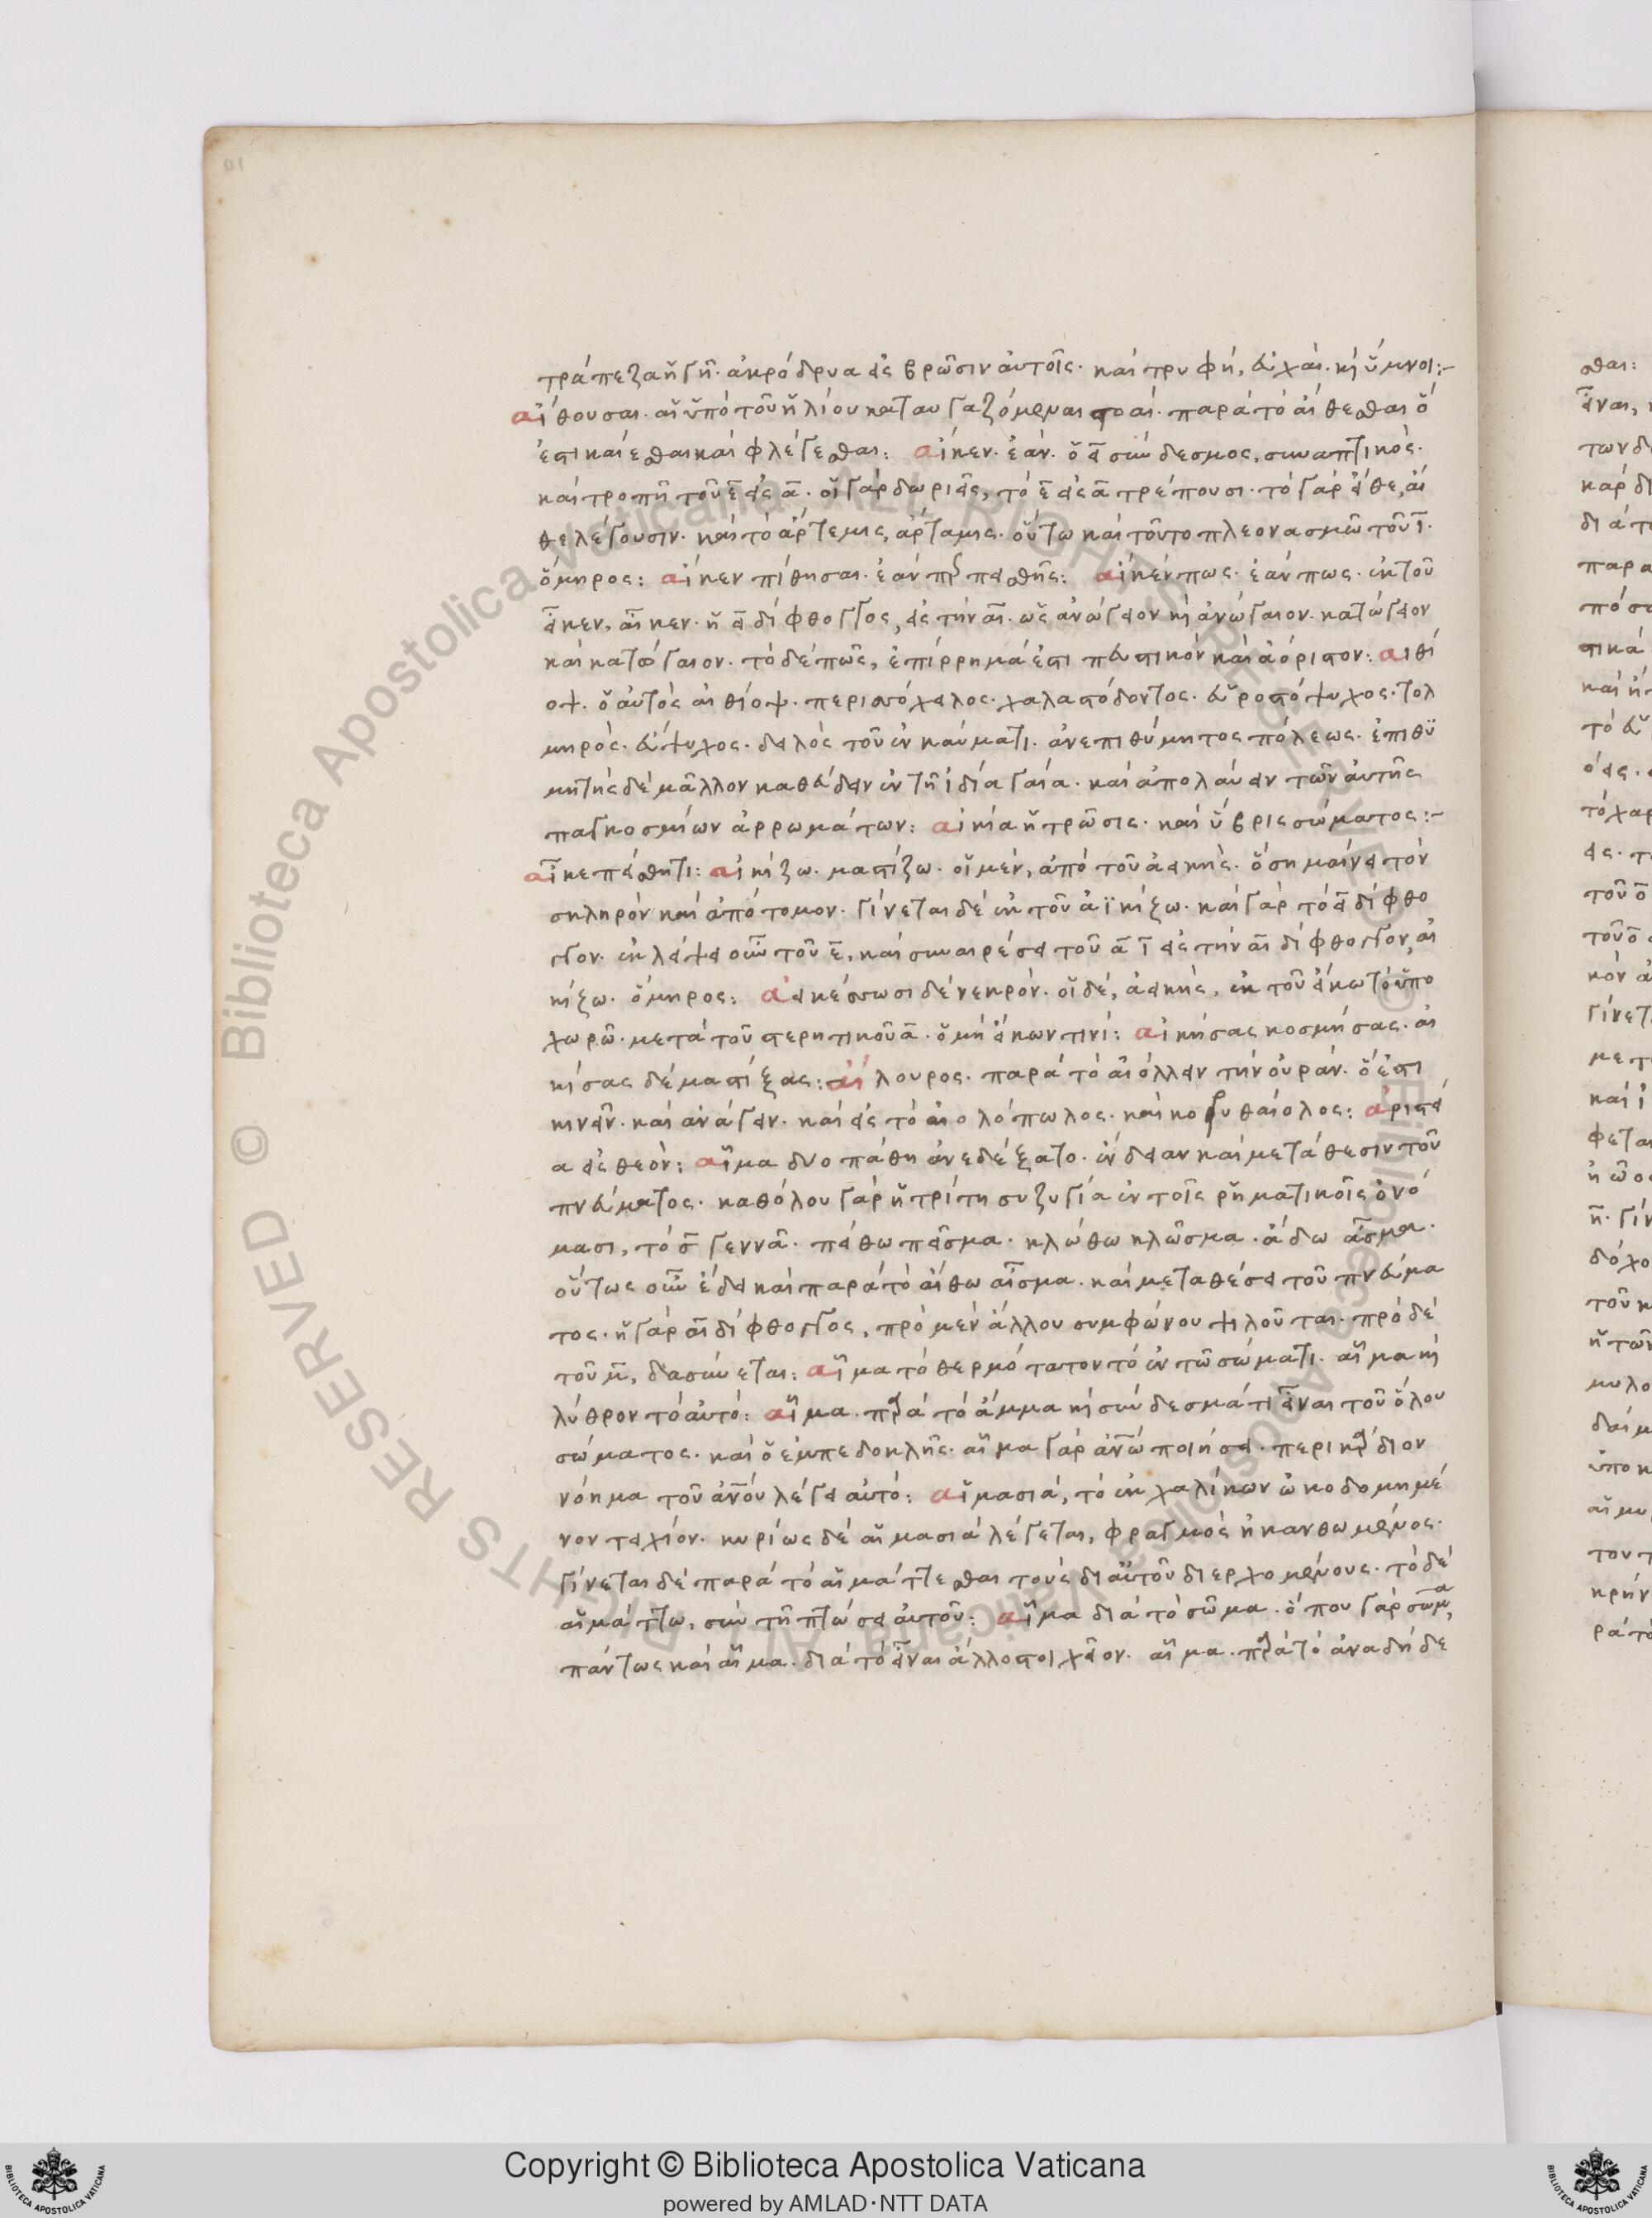 τράπεζα ἡ γῆ· ἀκρόδρυα εἰς βρῶσιν αὐτοῖς· καὶ τρυφή, εὐχαὶ· κὶ ὕμνοι:-
αἴθουσαι· αἱ ὑπὸ τοῦ ἡλίου καταυγαζόμεναι στοαί· παρὰ τὸ αἴθεσθαι ὅ
ἐστι καίεσθαι καὶ φλέγεσθαι: αἴκεν· ἐάν· ὁ εἰ σύνδεσμος, συναπτικὸς·
καὶ τροπῆ τοῦ ε εἰς α· οἱ γὰρ δωριεῖς, τὸ ε εἰς α τρέπουσι· τὸ γὰρ εἴθε, αἴ
θε λέγουσιν· καὶ τὸ ἄρτεμις, ἄρταμις· οὕτω καὶ τοῦτο πλεονασμῶ τοῦ ι·
ὅμηρος: αἴκεν πίθησαι· ἐὰν πεισθῆς: αἴκέν πως· ἐάν πως· ἐκ τοῦ
εἴκεν, αἴκεν· ἡ ει δίφθογγος, εἰς τὴν αι· ὡς ἀνώγειον κὶ ἀνώγαιον· κατώγειον
καὶ κατώγαιον· τὸ δέ πως, ἐπίρρημά ἐστι πευστικὸν καὶ ἀόριστον: αἰθί
οψ· ὁ αὐτὸς αἰθίοψ· περισσόχαλος· χαλασπόδοντος· εὐροστόψυχος· τολ
μηρὸς· εὔψυχος· δαλὸς τοῦ ἐν καύματι· ἀνεπιθύμητος πόλεως· ἐπιθϋ
μητὴς δὲ μᾶλλον καθεύδειν ἐν τῆ ἰδία γαία· καὶ ἀπολαύειν τῶν αὐτῆς
παγκοσμίων ἀρρωμάτων: αἰκία ἡ τρῶσις· καὶ ὕβρις σώματος:-
αἴκε πάθητι: αἰκίζω· μαστίζω· οἱ μὲν, ἀπὸ τοῦ ἀεικὴς· ὃ σημαίνει τὸν
σκληρὸν καὶ ἀπότομον· γίνεται δὲ ἐκ τοῦ ἀϊκίζω· καὶ γὰρ τὸ ει δίφθο
γγον· ἐκλείψει οὖν τοῦ ε, καὶ συναιρέσει τοῦ α ι εἰς τὴν αι δίφθογγον, αἰ
κίζω· ὅμηρος: ἀεικέσσωσι δὲ νεκρὸν· οἱ δὲ, ἀεικὴς, ἐκ τοῦ εἴκω τὸ ὑπο
χωρῶ· μετὰ τοῦ στερητικοῦ α· ὁ μὴ εἴκων τινί: αἰκήσας κοσμήσας· αἰ
κίσας δὲ μαστίξας: αἴλουρος· παρὰ τὸ αἰόλλειν τὴν οὐράν· ὅ ἐστι
κινεῖν· καὶ ἀνάγειν· καὶ εἰς τὸ αἰολόπωλος· καὶ κορυθαίολος: ἀριστεί
α εἰς θεὸν: αἷμα δύο πάθη ἀνεδέξατο· ἔνδειαν καὶ μετάθεσιν τοῦ
πνεύματος· καθόλου γὰρ ἡ τρίτη συζυγία ἐν τοῖς ῥηματικοῖς ὀνό
μασι, τὸ σ γεννᾶ· πείθω πεῖσμα· κλώθω κλῶσμα· ἄδω ἆσμα·
οὕτως οὖν ἔδει καὶ παρὰ τὸ αἴθω αἶσμα· καὶ μεταθέσει τοῦ πνεύμα
τος· ἡ γὰρ αι δίφθογγος, πρὸ μὲν ἄλλου συμφώνου ψιλοῦται· πρὸ δὲ
τοῦ μ, δασύνεται: αἷμα τὸ θερμότατον τὸ ἐν τῶ σώματι· αἷμα κὶ
λύθρον τὸ αὐτὸ: αἷμα· παρὰ τὸ ἅμμα κὶ σύνδεσμά τι εἶναι τοῦ ὅλου
σώματος· καὶ ὁ ἐμπεδοκλῆς· αἷμα γὰρ ἀνω ποιήσει· περικάρδιον
νόημα τοῦ ἀνου λέγει αὐτὸ: αἱμασιά, τὸ ἐκ χαλίκων ὠκοδομημέ
νον τειχίον· κυρίως δὲ αἱμασιὰ λέγεται, φραγμὸς ἠκανθωμένος·
γίνεται δὲ παρὰ τὸ αἱμάττεσθαι τοὺς δι αὐτοῦ διερχομένους· τὸ δὲ
αἱμάττω, σὺν τῆ πτώσει αὐτοῦ: αἷμα διὰ τὸ σῶμα· ὅπου γὰρ σῶμα,
πάντως καὶ αἷμα· διὰ τὸ εἶναι ἄλλο στοιχεῖον· αἷμα· παρὰ τὸ ἀναδήδε